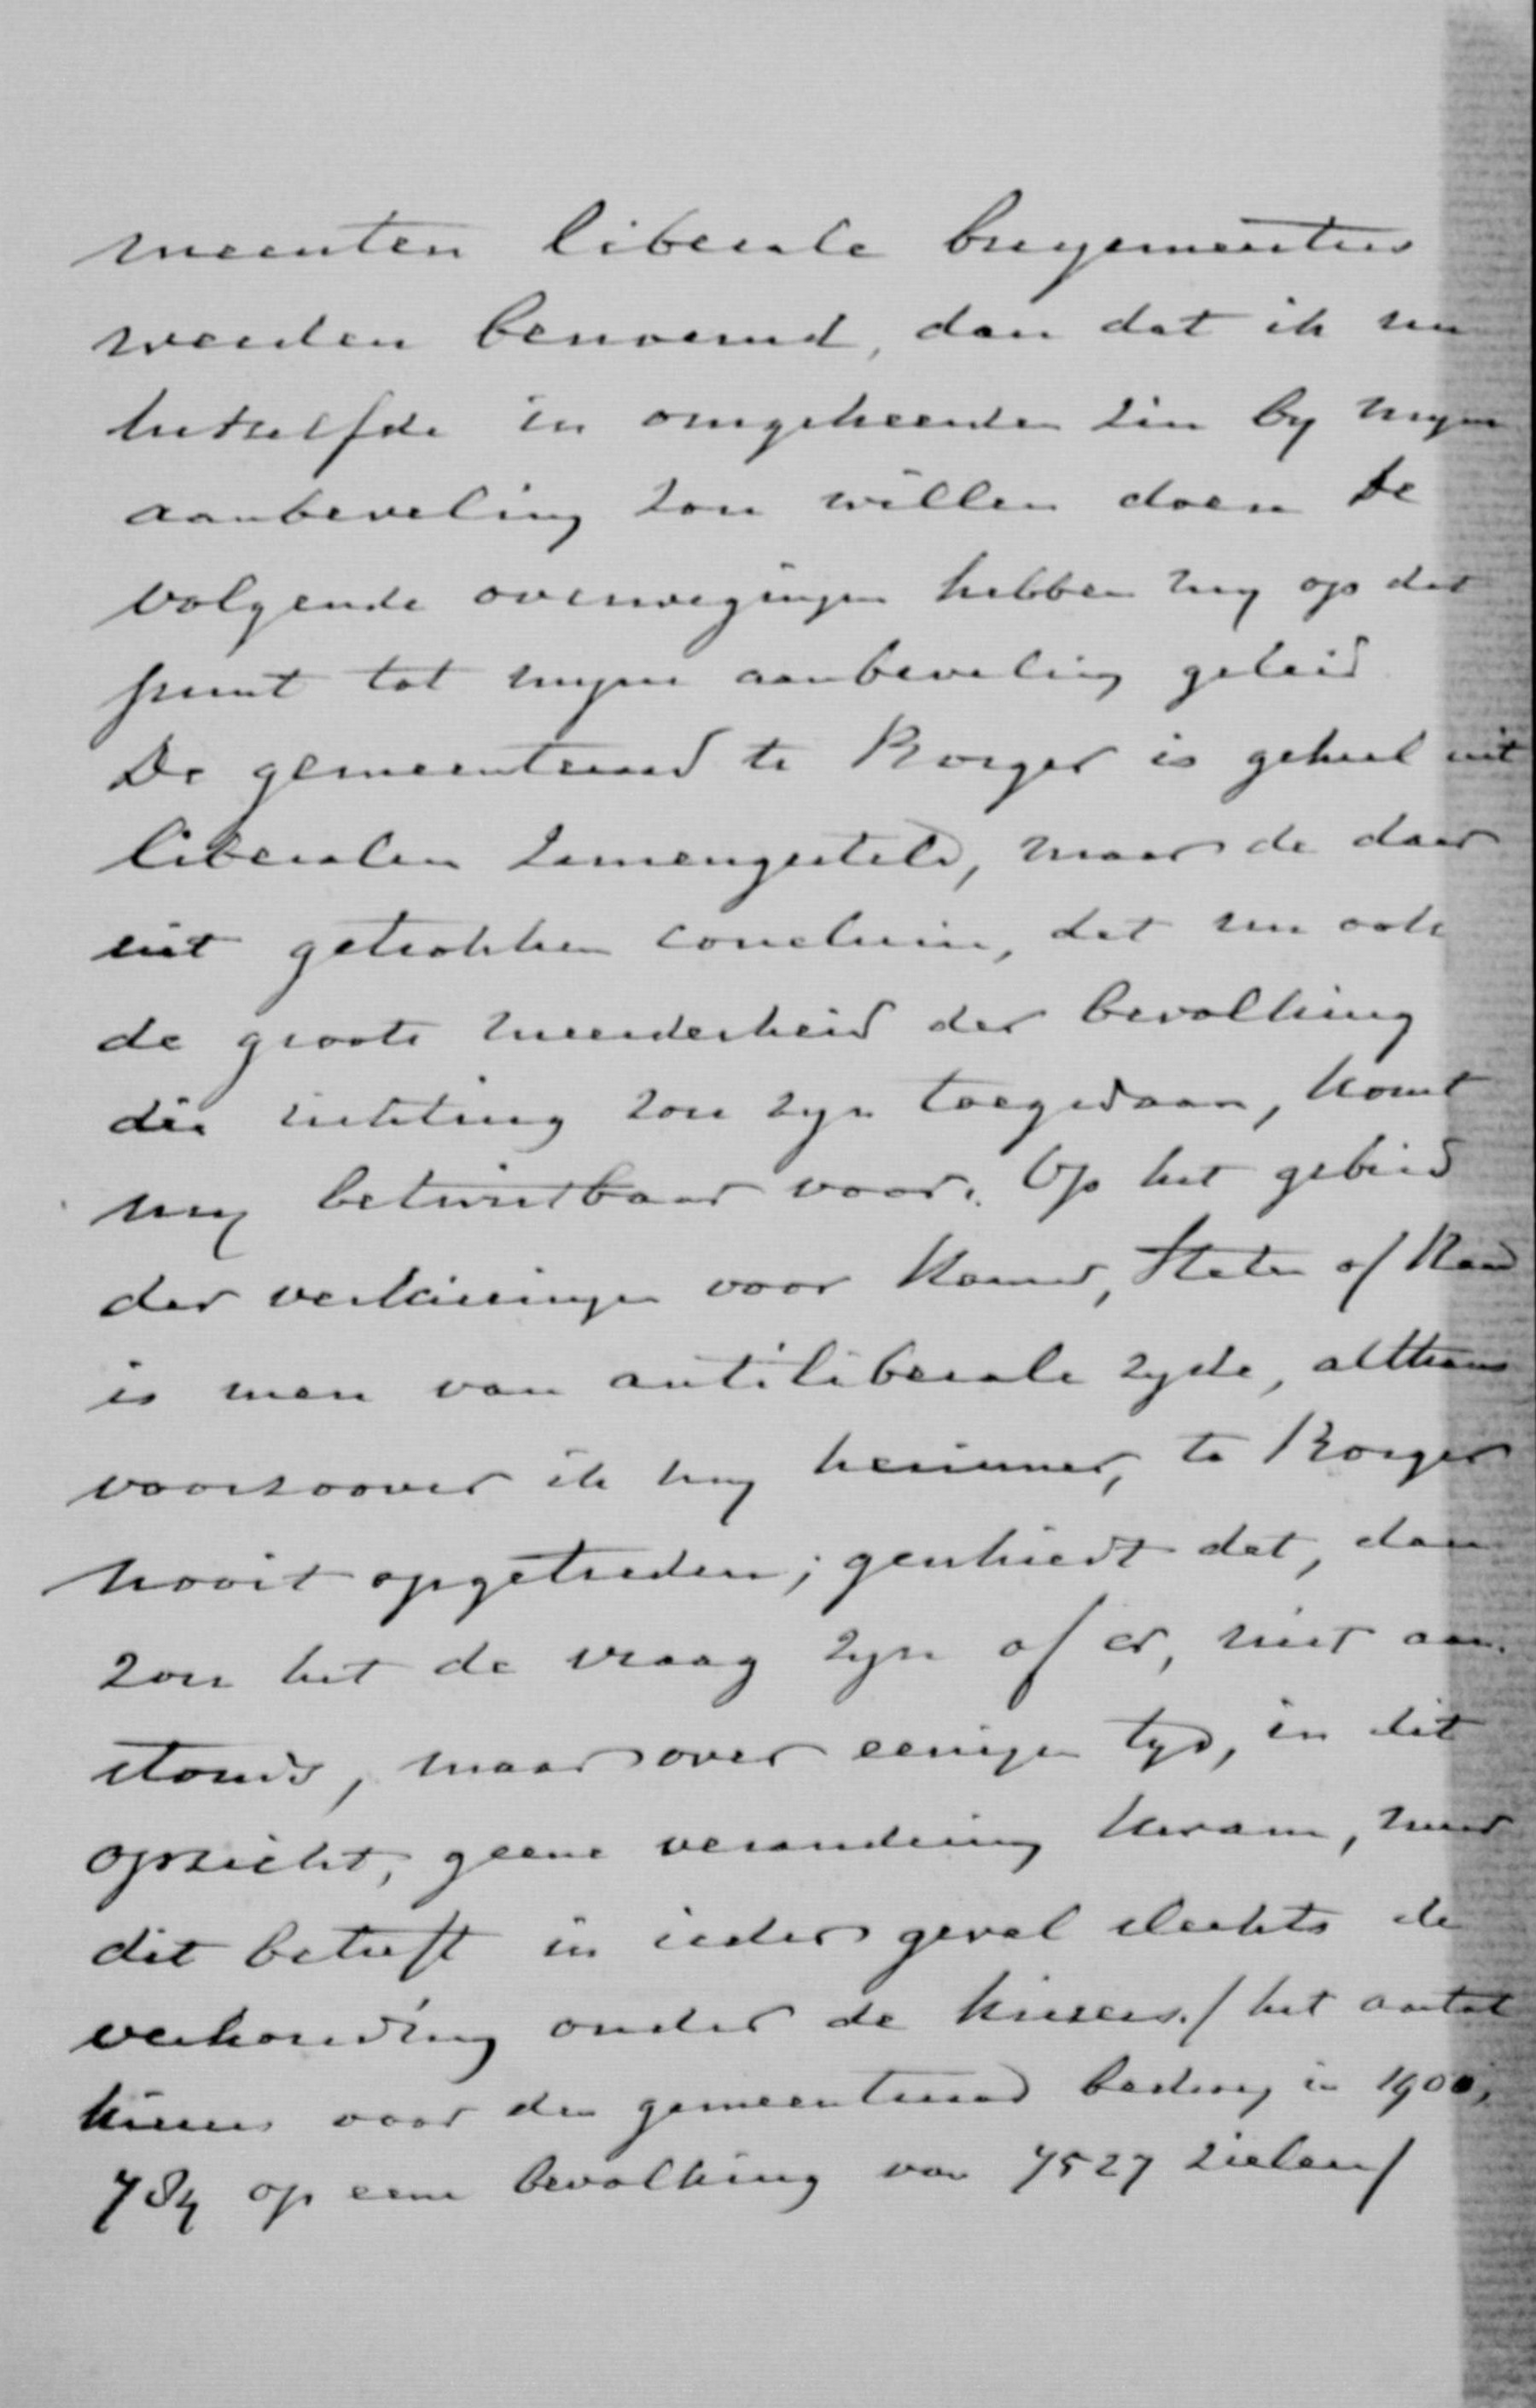 meenten liberale burgemeesters
werden benoemd, dan dat ik nu
hetzelfde in omgekeerden zin by myne
aanbeveling zou willen doen De
volgende overwegingen hebben my op dit
punt tot myne aanbeveling geleid
De gemeenteraad te Borger is geheel uit
liberalen zamengesteld, maar de daar
uit getrokken conclusie, dat nu ook
de groote meerderheid der bevolking
die richting zou zyn toegedaan, komt
my betwistbaar voor. Op het gebied
der verkiezingen voor Kamer, Staten of Raad
is men van antiliberale zyde, althans
voorzoover ik my herinner, te Borger
nooit opgetreden; geschiedt dat, dan
zou het de vraag zyn of er, niet aan
stonds, maar over eenigen tyd, in dit
opzicht, geene verandering kwam, maar
dit betreft in ieder geval slechts de
verhouding onder de kiezers. / het aantal
kiezers voor den gemeenteraad bedroeg in 1900,
784 op eene bevolking van 7527 zielen /